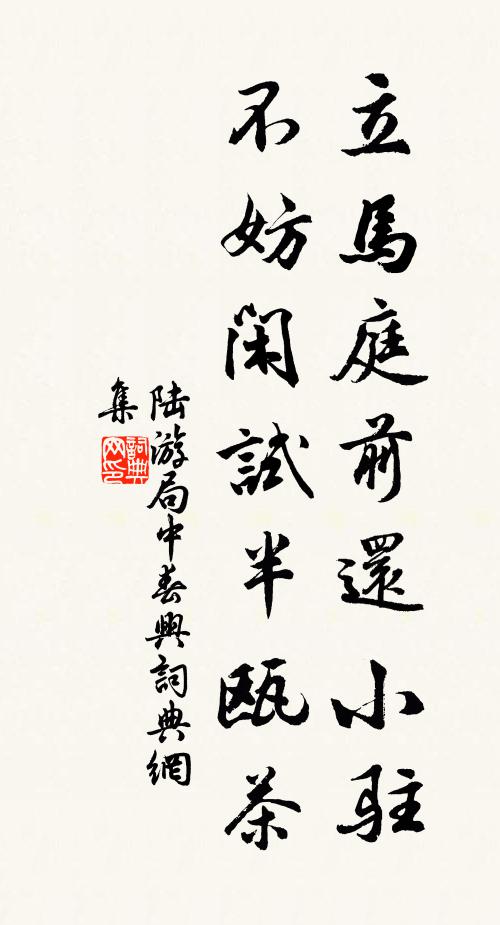 立馬庭前還小駐
不妨閑試半甌茶
陆游局中春興詞典網
集
詞典
网印